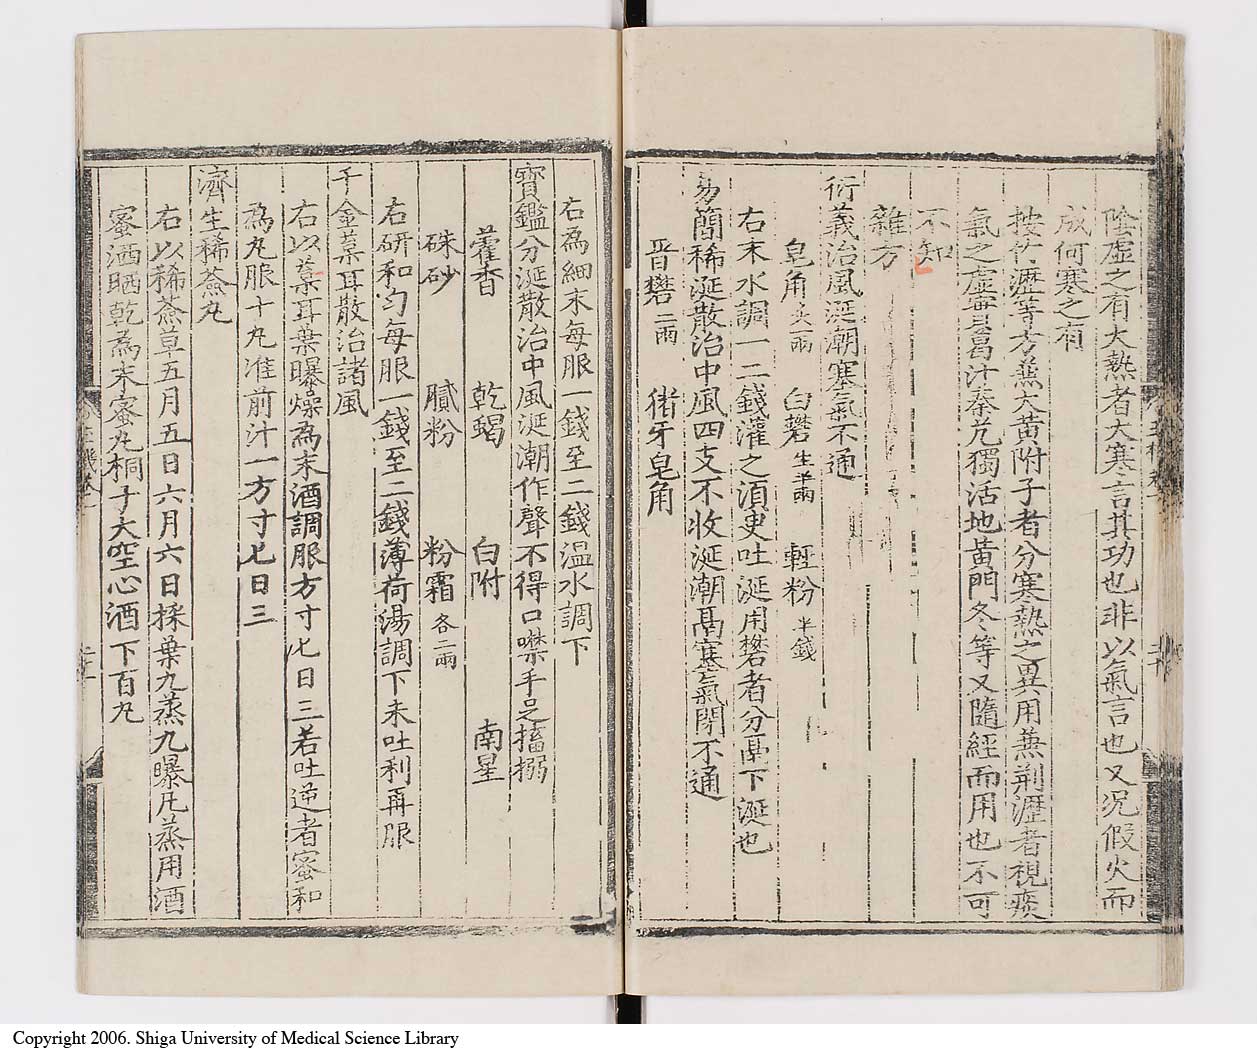 陰虛之有大熱者大寒言其功也非以氣言也又況假火而
成何寒之有
按竹瀝等方燕大黄附子者分寒熱之異用兼荆瀝者視痰
氣之虛實葛汁秦艽獨活地黄門冬等又隨經而用也不可
不知
雜方
衍義治風涎潮塞氣不通
皂角炙一兩 白礬生半兩 輕粉半錢
右末水調一二錢灌之須臾吐涎用礬者分鬲下涎也
易簡稀涎散治中風四支不收涎潮鬲塞氣閉不通
晋礬二兩 猪牙皂角
右為細末每服一錢至二錢温水調下
寳鑑分涎散治中風涎潮作聲不得口噤手足搐搦
藿香 乾蝎 白附 南星
硃砂 膩粉 粉霜各二兩
右研和匀每服一錢至二錢薄荷湯調下未吐利再服
千金葈耳散治諸風
右以葈耳葉曝燥為末酒調服方寸匕日三若吐逆者蜜和
為丸服十丸准前汁一方寸匕日三
濟生稀薟丸
右以稀薟草五月五日六月六日採葉九蒸九曝凡蒸用酒
蜜洒晒乾為末蜜丸桐子大空心酒下百丸
Copyright 2006. Shiga University of Medical Science Library